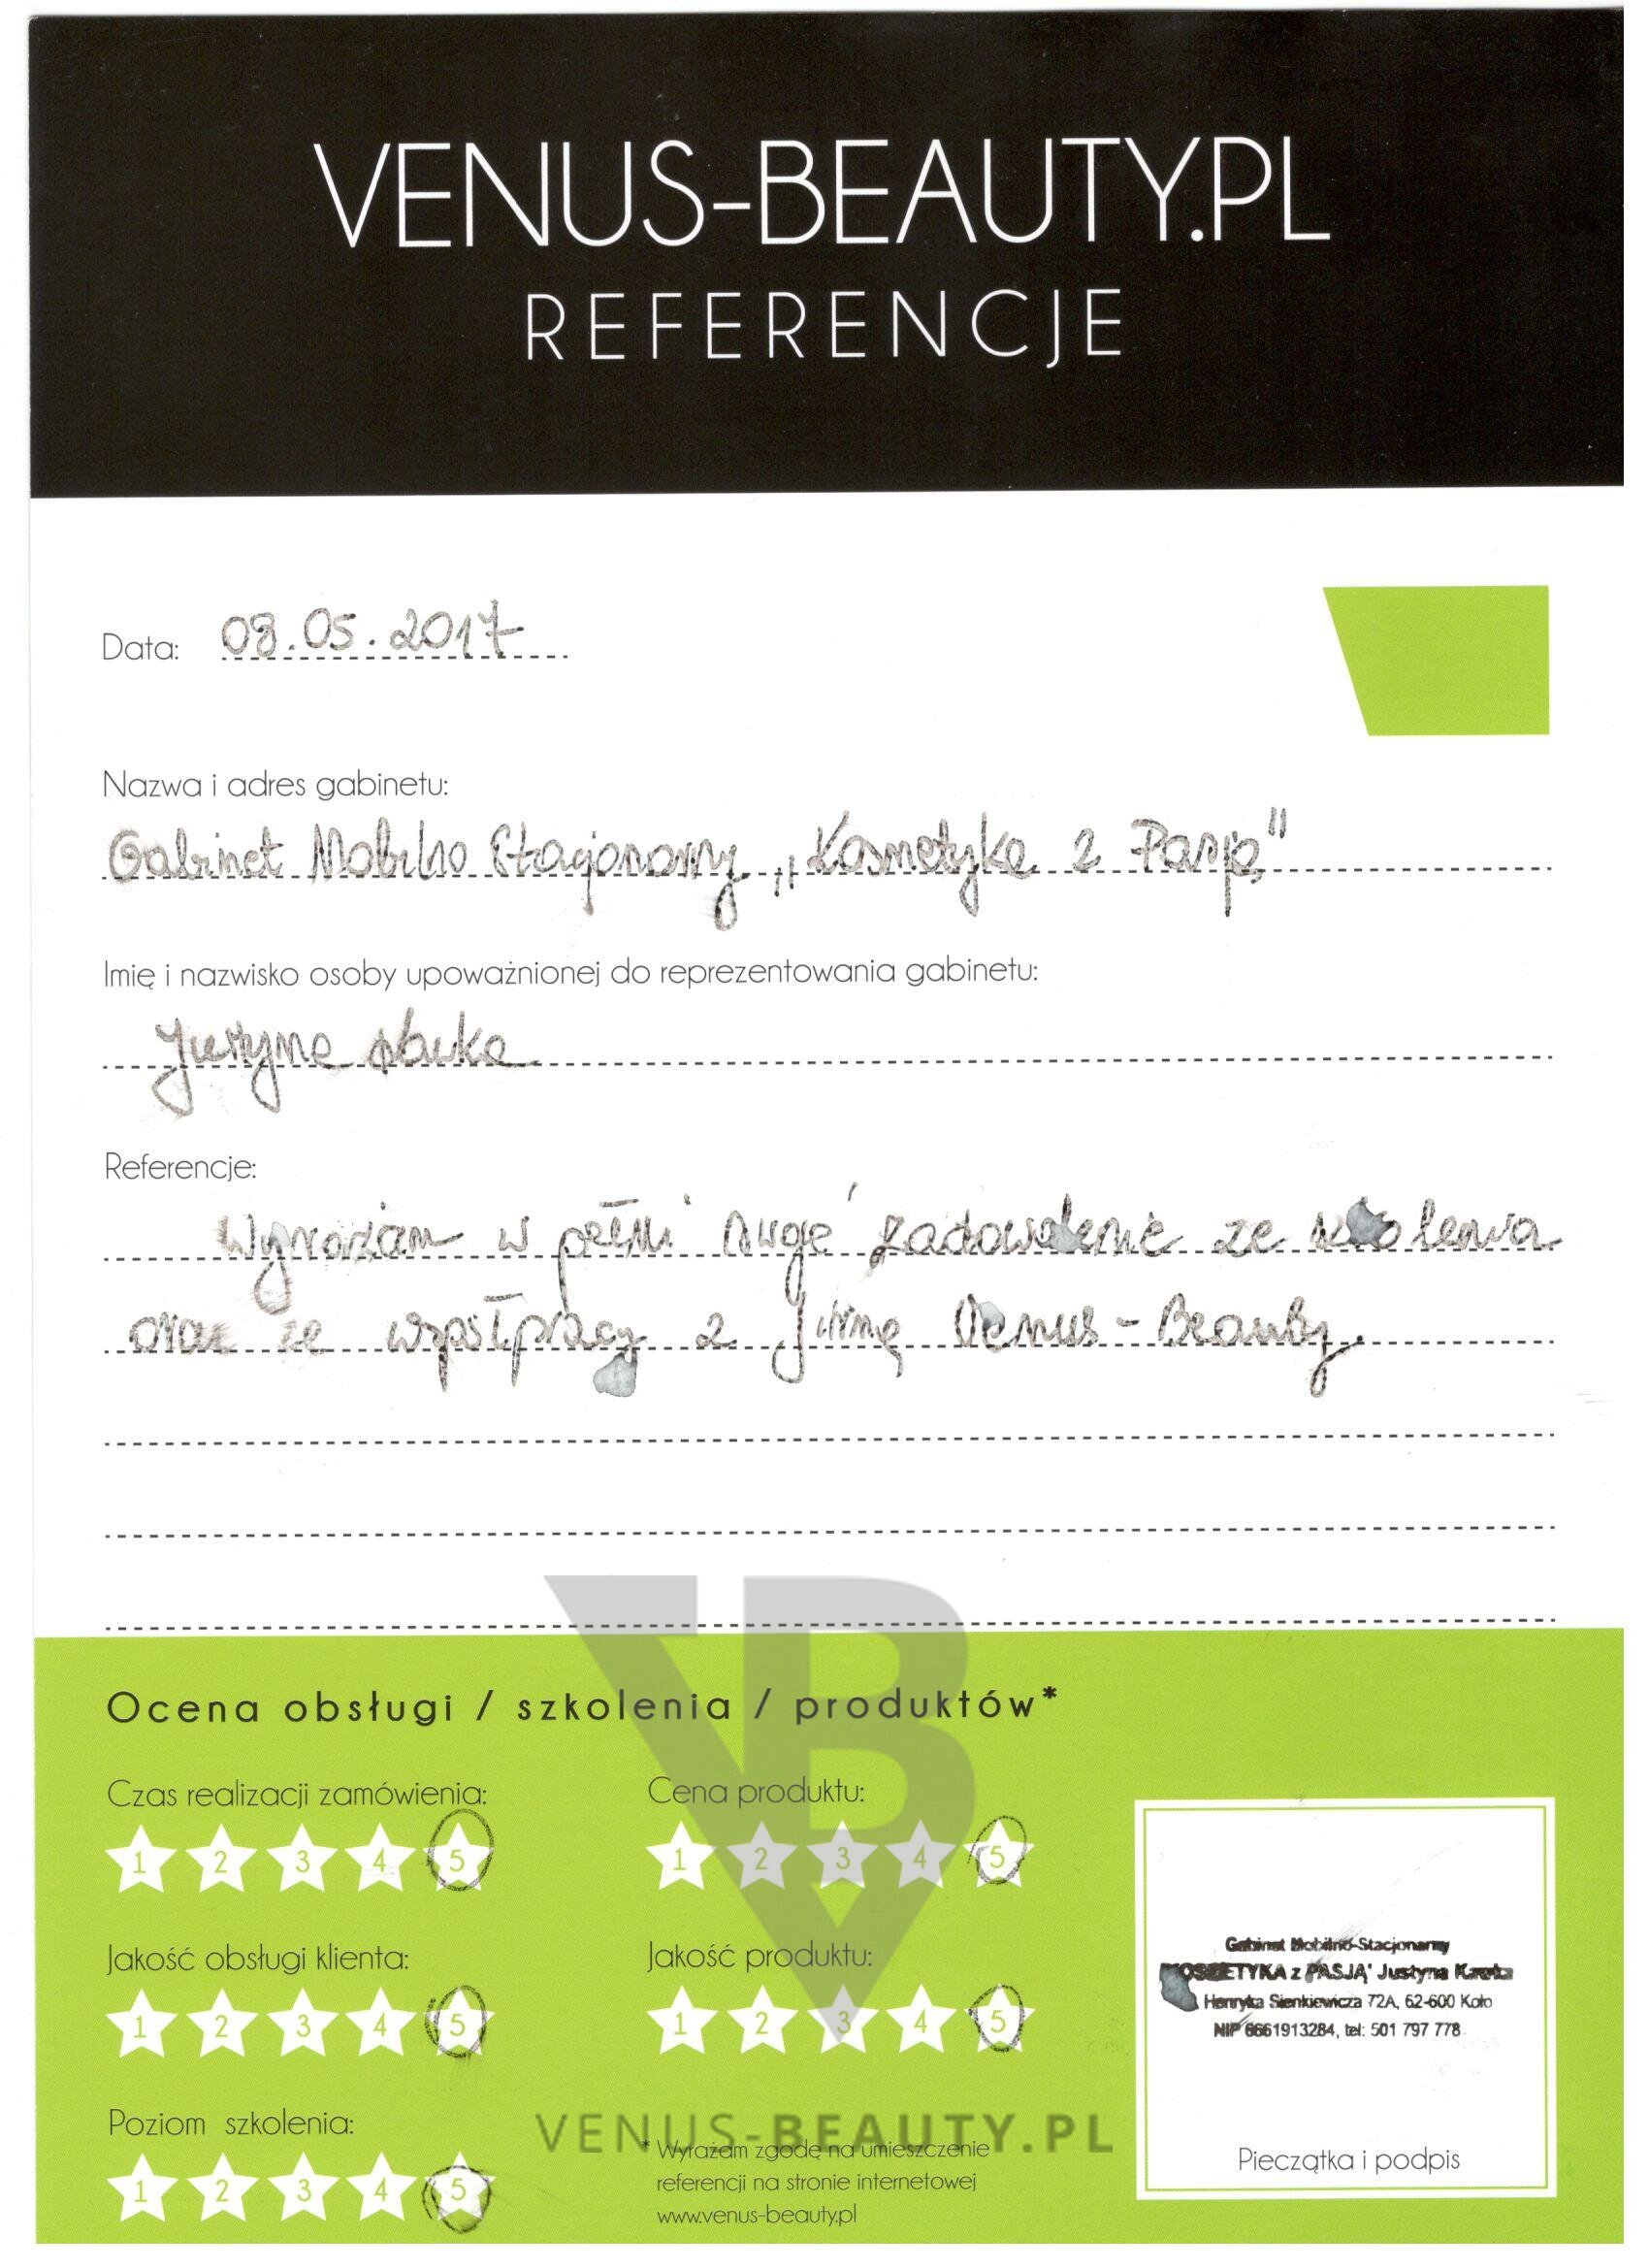 VENUS-BEAUTY.PL
REFERENCJE
Data: 08.05.2017
Nazwa i adres gabinetu:
Gabinet Mobilno Stacjonarny „Kosmetyka z Pasją"
Imię i nazwisko osoby upoważnionej do reprezentowania gabinetu:
Justyna
Referencje:
Wyrażam w pełni swoje zadowolenie ze szkolenia
oraz ze współpracy z firmą Venus-Beauty.
Ocena obsługi / szkolenia / produktów*
Czas realizacji zamówienia:
1 2 3 4 5
Cena produktu:
1 2 3 4 5
Jakość obsługi klienta:
1 2 3 4 5
Jakość produktu:
1 2 3 4 5
Poziom szkolenia:
1 2 3 4 5
* Wyrażam zgodę na umieszczenie
referencji na stronie internetowej
www.venus-beauty.pl
Gabinet Mobilno-Stacjonarny
KOSMETYKA z PASJĄ" Justyna
Henryka Sienkiewicza 72A, 62-600 Koło
NIP 6661913284, tel: 501 797 778
Pieczątka i podpis
VB
VENUS-BEAUTY.PL